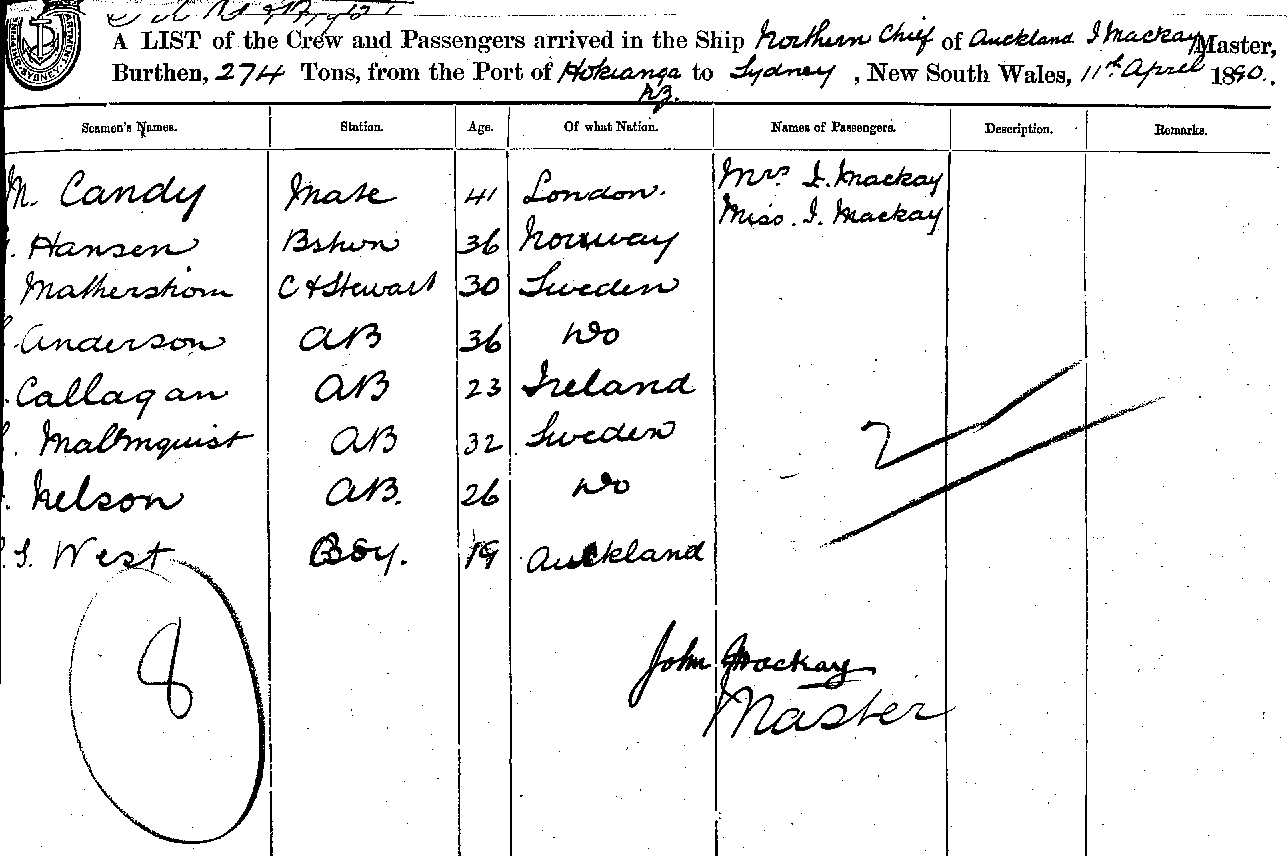 A LIST of the Crew and Passengers arrived in the Ship Northern Chief of Auckland J Mackay Master,
Burthen, 274 Tons, from the Port of Hokianga to Sydney, New South Wales, 11th April 1890.
NZ.
Seamen's Names. Station. Age. Of what Nation. Names of Passengers. Description. Remarks.
M. Candy Mate 41 London. Mrs J. Mackay
Miss. J. Mackay
Hansen Bstwn 36 Norway
Mathershom C & Stewart 30 Sweden
Anderson AB 36 Do
Callagan AB 23 Ireland
Mallmquist AB 32 Sweden
Nelson AB. 26 Do
J. West Boy. 19 Auckland
2
8
John Mackay
Master